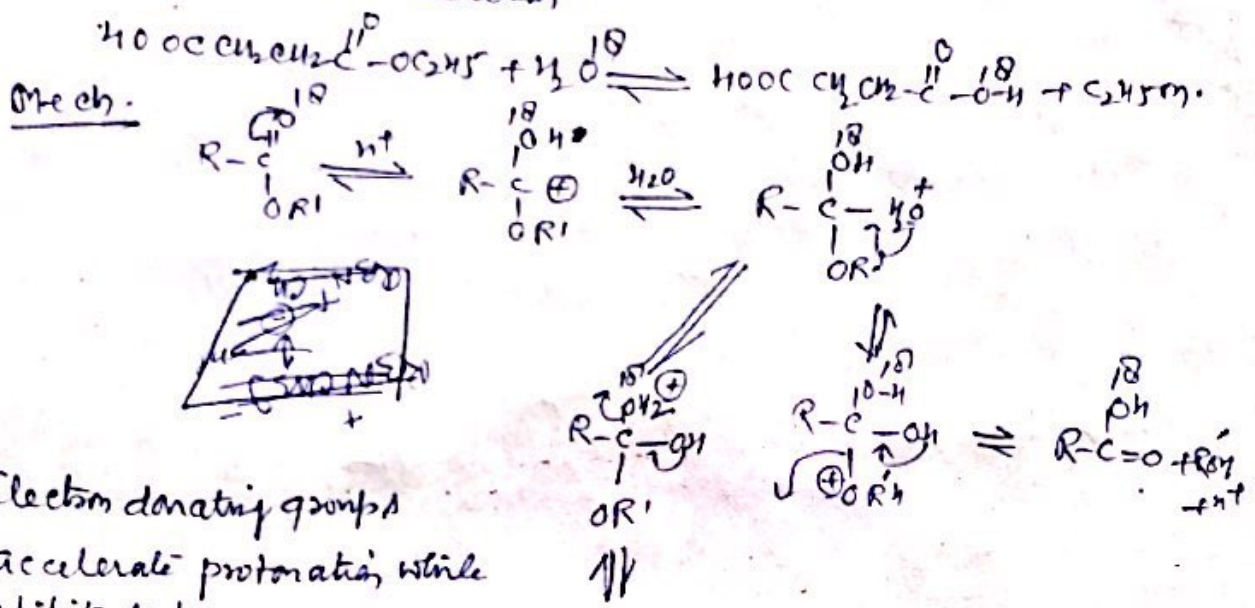 HOOCCH2CH2C(=O)-OC2H5 + H2O18 ⇌ HOOCCH2CH2-C(=O)-O18-H + C2H5OH.
Mech.
R-C(=O18)-OR' ⇌ H+ R-C⊕(18OH)-OR' ⇌ H2O R-C(18OH)(OR')-H2O+
R-C(18OH2⊕)(OR')-OH R-C(18O-H)(⊕OR'H)-OH ⇌ R-C(18OH)=O + R'OH + H+
Electron donating groups
accelerate protonation, while